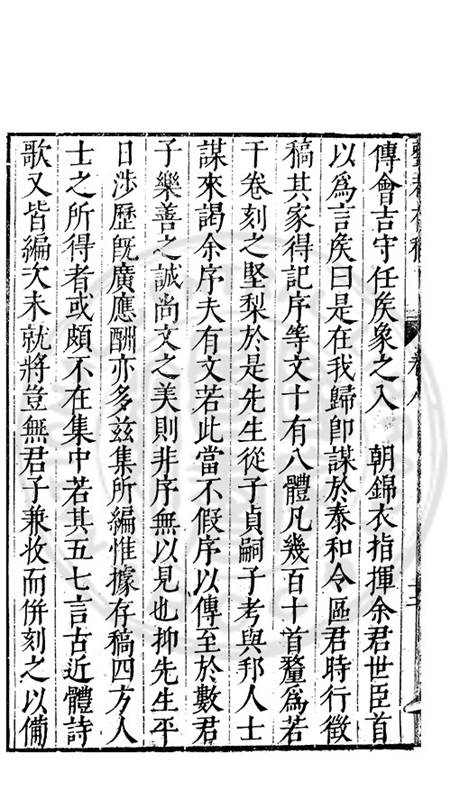 傳會吉守任矦象之入　朝錦衣指揮余君世臣首
以爲言矦曰是在我歸卽謀於泰和令區君時行徵
稿其家得記序等文十有八體凡幾百十首釐爲若
干卷刻之堅梨於是先生從子貞嗣子考與邦人士
謀來謁余序夫有文若此當不假序以傳至於數君
子樂善之誠尚文之美則非序無以見也抑先生平
日涉歷旣廣應酬亦多兹集所編惟據存稿四方人
士之所得者或頗不在集中若其五七言古近體詩
歌又皆編次未就將豈無君子兼收而併刻之以備